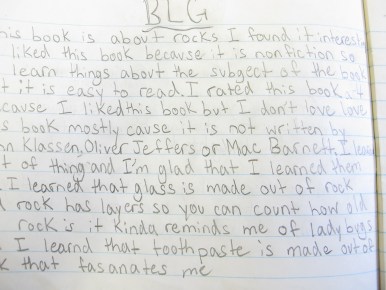 BLG
his book is about rocks I found it interest
liked this book because it is nonfiction so
learn things about the subgect of the book
t it is easy to read. I rated this book
cause I liked this book but I don't love love
s book mostly cause it is not written by
n Klassen, Oliver Jeffers or Mac Barnett. I lear
t of thing and I'm glad that I learned them
. I learned that glass is made out of rock
rock has layers so you can count how old
rock is it kinda reminds me of lady bygs
. I learnd that toothpaste is made out of
k that fasanates me